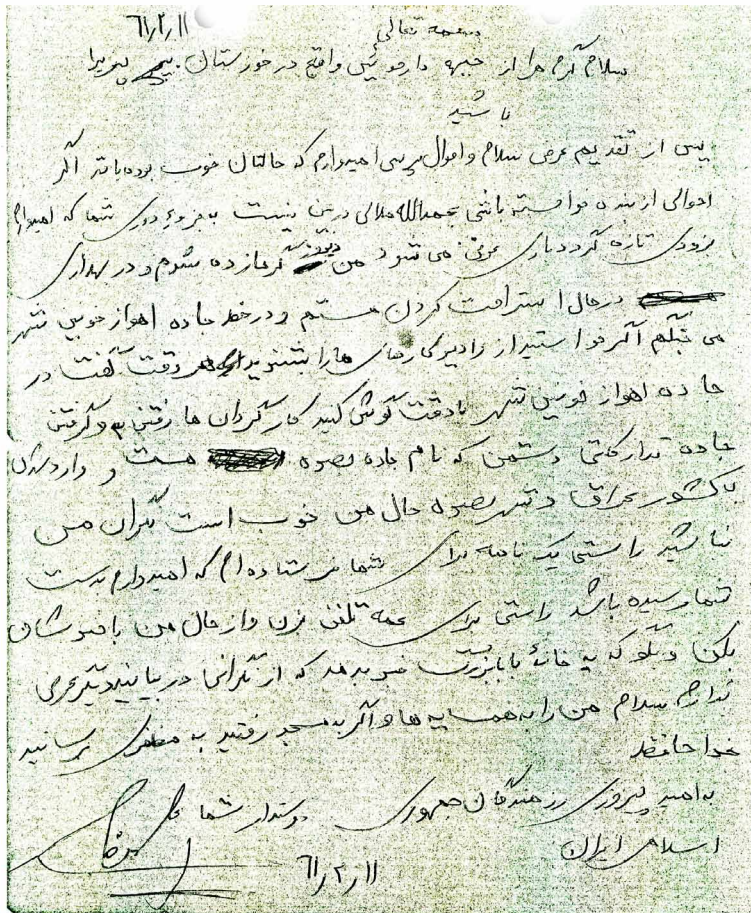 ۶۱/۲/۱۱
بسمه تعالی
سلام گرم مرا از جبهه دارخوئین واقع در خوزستان بپذیرا
باشید
پس از تقدیم عرض سلام و احوال پرسی امیدوارم که حالتان خوب بوده باشد اگر
احوالی از بنده خواسته باشی بحمدالله ملالی در بین نیست به جزء دوری شما که امیدوارم
بزودی تازه گردد باری عرض می شود من دیروز گرمازده شدم و در بهداری
در حال استراحت کردن هستم و در خط جاده اهواز خونین شهر
می جنگم اگر خواستید از رادیو کارهای ما را بشنوید هر وقت گفت در
جاده اهواز خونین شهر با دقت گوش کنید کار گردان ما رفتن و گرفتن
جاده تدارکاتی دشمن که نام جاده بصره هست و وارد شدن
با کشور عراق و شهر بصره حال من خوب است نگران من
نباشید راستی یک نامه برای شما فرستاده ام که امیدوارم بدست
شما رسیده باشد راستی برای عمه تلفن بزن و از حال من با خبرشان
بکن و بگو که به خانهٔ بابابزرگ خبر بدهد که از نگرانی در بیایند دیگر عرضی
ندارم سلام من را به همسایه ها و اگر به مسجد رفتید به برسانید
خداحافظ
به امید پیروزی رزمندگان جمهوری دوستدار شما
اسلامی ایران
۶۱/۲/۱۱